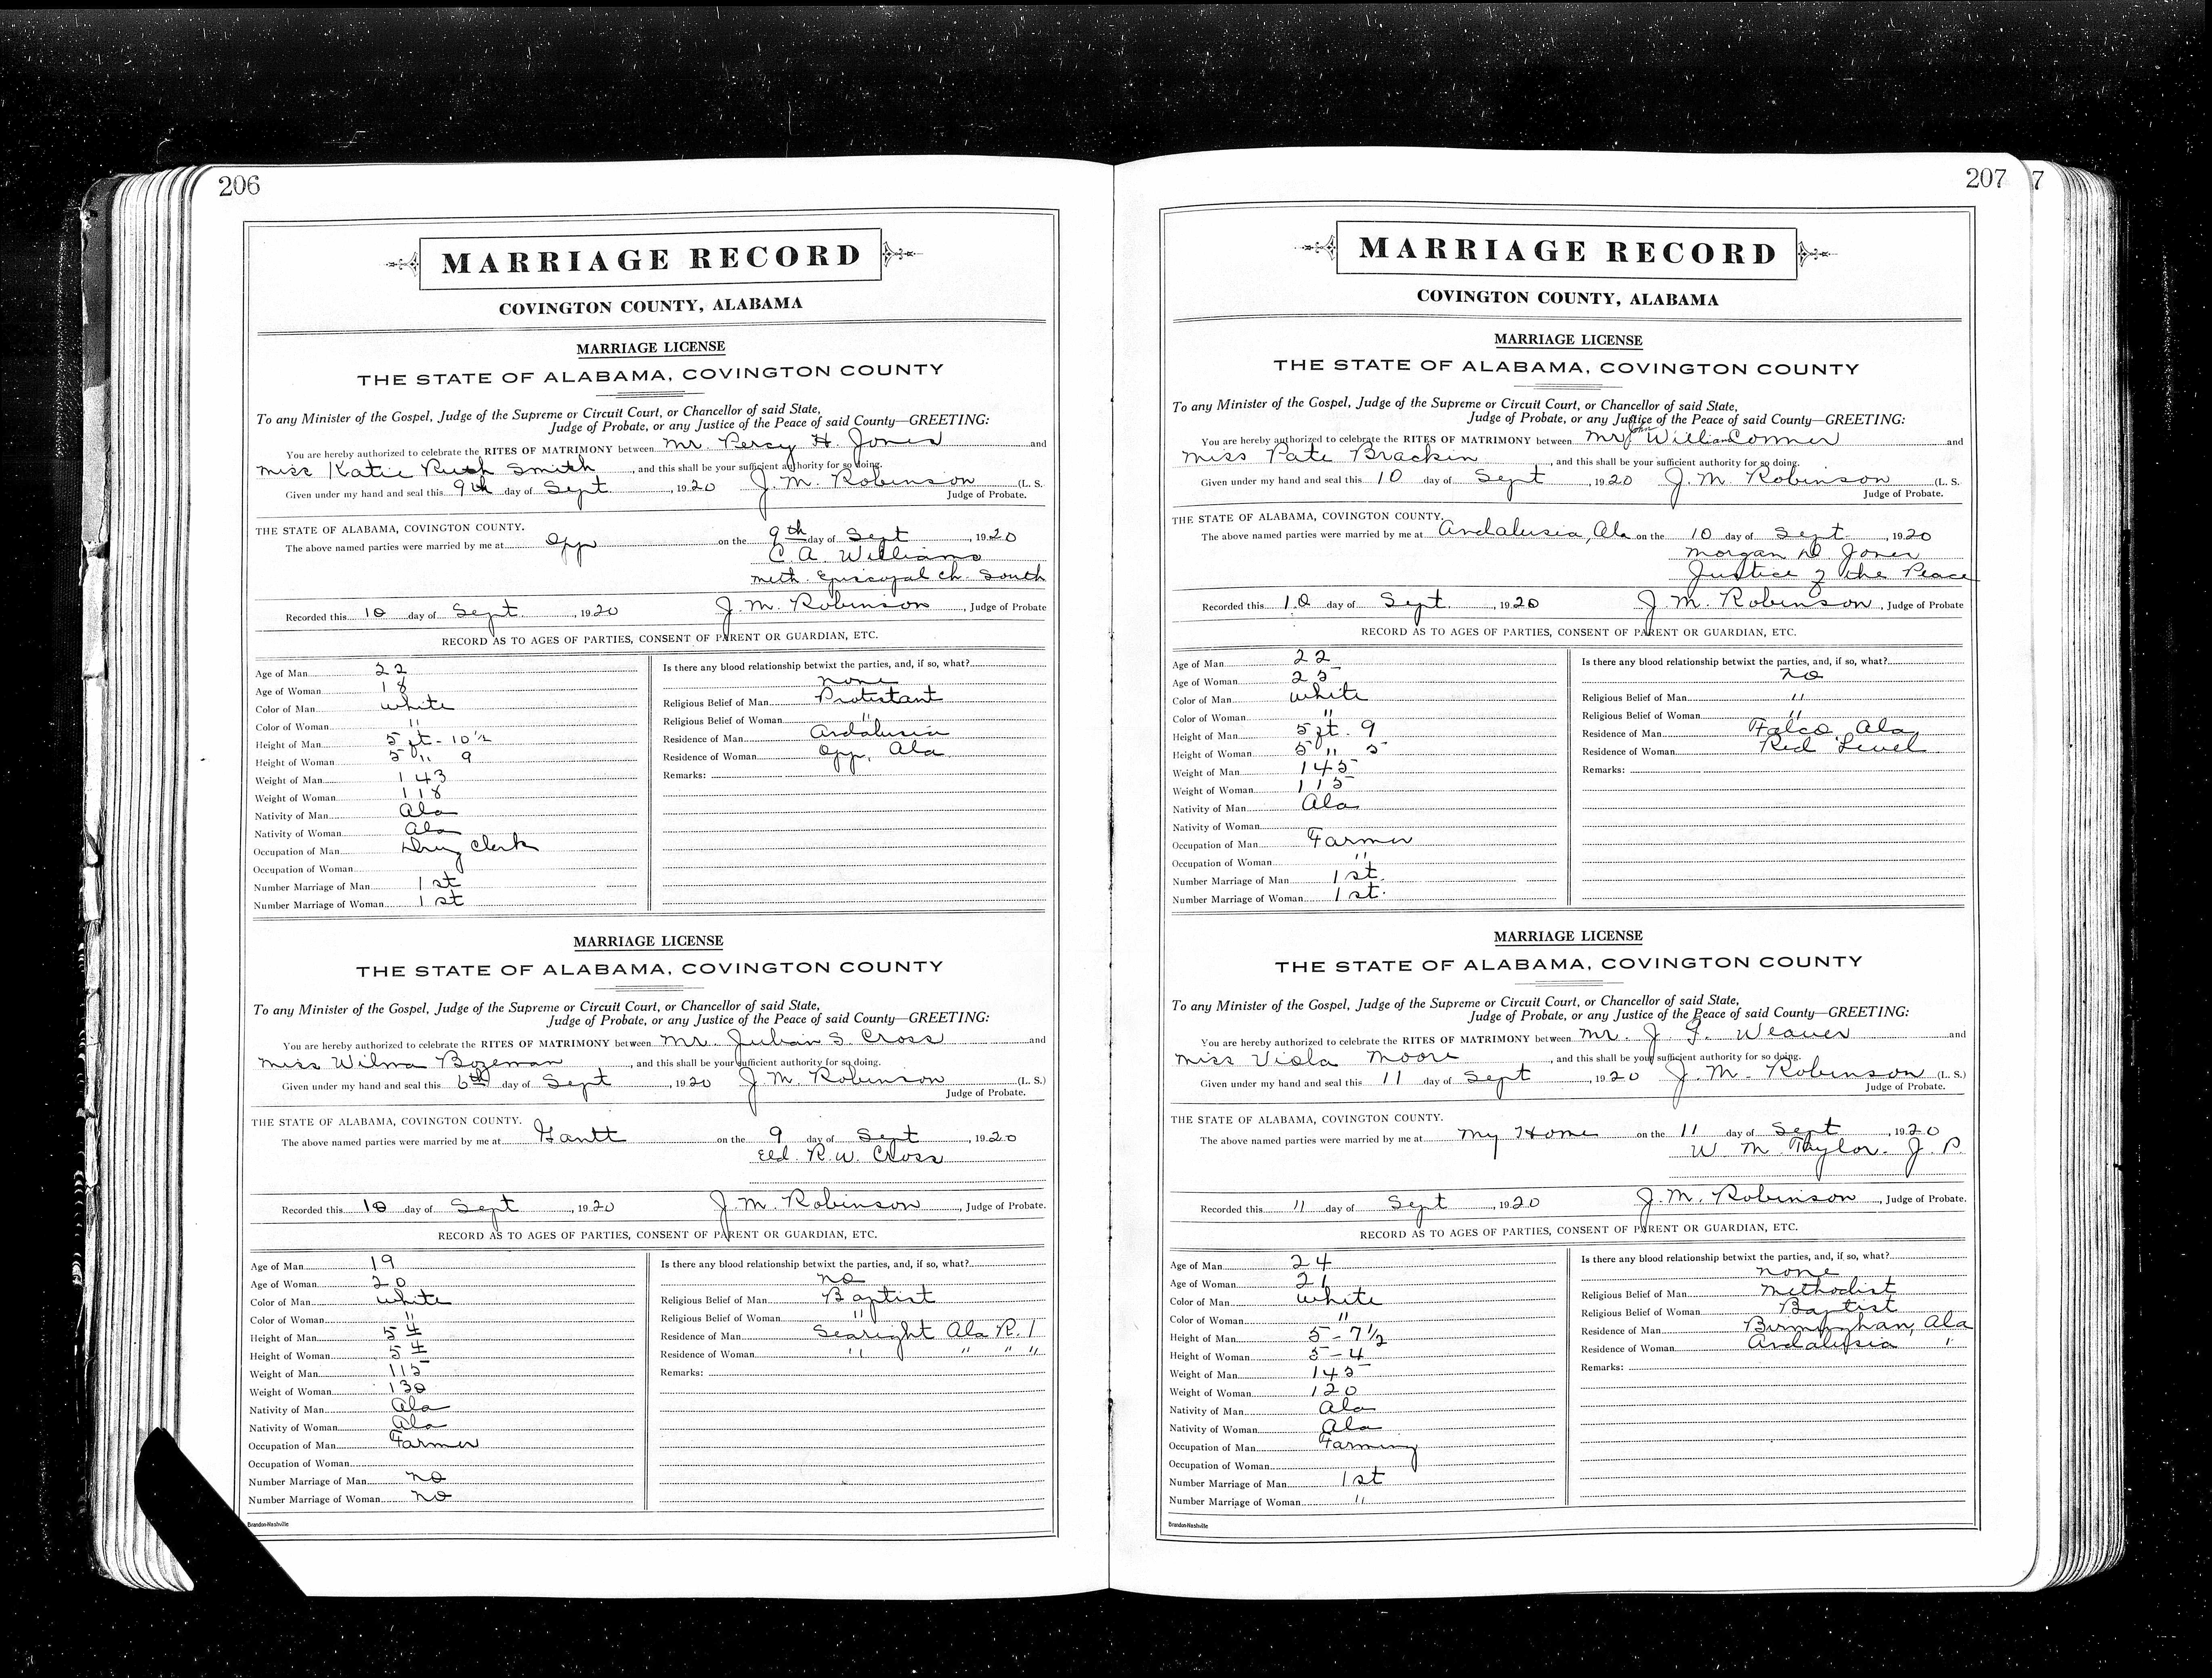 206
MARRIAGE RECORD
COVINGTON COUNTY, ALABAMA
MARRIAGE LICENSE
THE STATE OF ALABAMA, COVINGTON COUNTY
To any Minister of the Gospel, Judge of the Supreme or Circuit Court, or Chancellor of said State,
Judge of Probate, or any Justice of the Peace of said County—GREETING:
You are hereby authorized to celebrate the RITES OF MATRIMONY between Mr. Percy H. Jones and
Miss Katie Ruth Smith, and this shall be your sufficient authority for so doing.
Given under my hand and seal this 9th day of Sept, 1920 J. M. Robinson (L. S.
Judge of Probate.
THE STATE OF ALABAMA, COVINGTON COUNTY.
The above named parties were married by me at Opp on the 9th day of Sept, 1920
C. A. Williams
Meth. Episcopal Ch. South
Recorded this 10 day of Sept., 1920 J. M. Robinson, Judge of Probate
RECORD AS TO AGES OF PARTIES, CONSENT OF PARENT OR GUARDIAN, ETC.
Age of Man 22
Age of Woman 18
Color of Man White
Color of Woman "
Height of Man 5 ft - 10 1/2
Height of Woman 5 " 9
Weight of Man 143
Weight of Woman 118
Nativity of Man Ala
Nativity of Woman Ala
Occupation of Man Drug Clerk
Occupation of Woman
Number Marriage of Man 1st
Number Marriage of Woman 1st
Is there any blood relationship betwixt the parties, and, if so, what?
none
Religious Belief of Man Protestant
Religious Belief of Woman "
Residence of Man Andalusia
Residence of Woman Opp, Ala
Remarks:
MARRIAGE LICENSE
THE STATE OF ALABAMA, COVINGTON COUNTY
To any Minister of the Gospel, Judge of the Supreme or Circuit Court, or Chancellor of said State,
Judge of Probate, or any Justice of the Peace of said County—GREETING:
You are hereby authorized to celebrate the RITES OF MATRIMONY between Mr. Julian S. Cross and
Miss Wilma Bozeman, and this shall be your sufficient authority for so doing.
Given under my hand and seal this 6th day of Sept, 1920 J. M. Robinson (L. S.)
Judge of Probate.
THE STATE OF ALABAMA, COVINGTON COUNTY.
The above named parties were married by me at Gantt on the 9 day of Sept, 1920
Eld. R. W. Cross
Recorded this 10 day of Sept, 1920 J. M. Robinson, Judge of Probate.
RECORD AS TO AGES OF PARTIES, CONSENT OF PARENT OR GUARDIAN, ETC.
Age of Man 19
Age of Woman 20
Color of Man White
Color of Woman "
Height of Man 5 4
Height of Woman 5 4
Weight of Man 115
Weight of Woman 130
Nativity of Man Ala
Nativity of Woman Ala
Occupation of Man Farmer
Occupation of Woman
Number Marriage of Man no
Number Marriage of Woman no
Is there any blood relationship betwixt the parties, and, if so, what?
no
Religious Belief of Man Baptist
Religious Belief of Woman "
Residence of Man Searight Ala R. 1
Residence of Woman " " " "
Remarks:
Brandon-Nashville
207 7
MARRIAGE RECORD
COVINGTON COUNTY, ALABAMA
MARRIAGE LICENSE
THE STATE OF ALABAMA, COVINGTON COUNTY
To any Minister of the Gospel, Judge of the Supreme or Circuit Court, or Chancellor of said State,
Judge of Probate, or any Justice of the Peace of said County—GREETING:
You are hereby authorized to celebrate the RITES OF MATRIMONY between Mr John William Conner and
Miss Pate Brackin, and this shall be your sufficient authority for so doing.
Given under my hand and seal this 10 day of Sept, 1920 J. M. Robinson (L. S.
Judge of Probate.
THE STATE OF ALABAMA, COVINGTON COUNTY.
The above named parties were married by me at Andalusia, Ala on the 10 day of Sept., 1920
Morgan D. Jones
Justice of the Peace
Recorded this 10 day of Sept., 1920 J. M. Robinson, Judge of Probate
RECORD AS TO AGES OF PARTIES, CONSENT OF PARENT OR GUARDIAN, ETC.
Age of Man 22
Age of Woman 25
Color of Man White
Color of Woman "
Height of Man 5 ft. 9
Height of Woman 5 " 5
Weight of Man 145
Weight of Woman 115
Nativity of Man Ala
Nativity of Woman
Occupation of Man Farmer
Occupation of Woman "
Number Marriage of Man 1st.
Number Marriage of Woman 1st.
Is there any blood relationship betwixt the parties, and, if so, what?
no
Religious Belief of Man "
Religious Belief of Woman "
Residence of Man Falco, Ala
Residence of Woman Red Level
Remarks:
MARRIAGE LICENSE
THE STATE OF ALABAMA, COVINGTON COUNTY
To any Minister of the Gospel, Judge of the Supreme or Circuit Court, or Chancellor of said State,
Judge of Probate, or any Justice of the Peace of said County—GREETING:
You are hereby authorized to celebrate the RITES OF MATRIMONY between Mr. J. G. Weaver and
Miss Viola Moore, and this shall be your sufficient authority for so doing.
Given under my hand and seal this 11 day of Sept, 1920 J. M. Robinson (L. S.)
Judge of Probate.
THE STATE OF ALABAMA, COVINGTON COUNTY.
The above named parties were married by me at My Home on the 11 day of Sept, 1920
W. M. Taylor. J. P.
Recorded this 11 day of Sept, 1920 J. M. Robinson, Judge of Probate.
RECORD AS TO AGES OF PARTIES, CONSENT OF PARENT OR GUARDIAN, ETC.
Age of Man 24
Age of Woman 21
Color of Man White
Color of Woman "
Height of Man 5-7 1/2
Height of Woman 5-4
Weight of Man 145
Weight of Woman 120
Nativity of Man Ala
Nativity of Woman Ala
Occupation of Man Farming
Occupation of Woman
Number Marriage of Man 1st
Number Marriage of Woman "
Is there any blood relationship betwixt the parties, and, if so, what?
none
Religious Belief of Man Methodist
Religious Belief of Woman Baptist
Residence of Man Birmingham, Ala
Residence of Woman Andalusia "
Remarks:
Brandon-Nashville